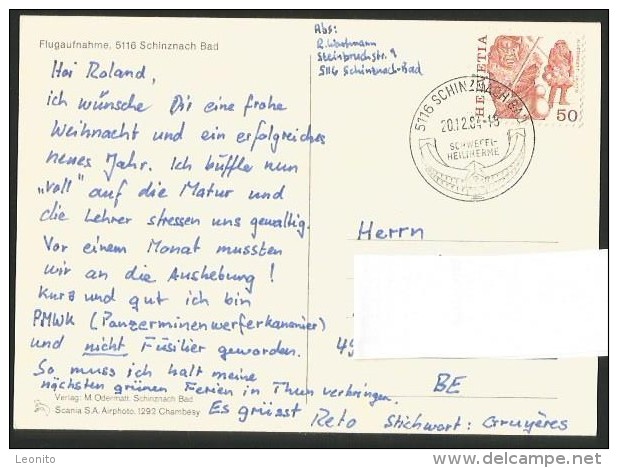 Flugaufnahme, 5116 Schinznach Bad
Hoi Roland,
ich wünsche Dir eine frohe
Weihnacht und ein erfolgreiches
neues Jahr. Ich büffle nun
„voll" auf die Matur und
die Lehrer stressen uns gewaltig.
Vor einem Monat mussten
wir an die Aushebung!
Kurz und gut ich bin
PMWK (Panzerminenwerferkanonier)
und nicht Füsilier geworden.
So muss ich halt meine
nächsten grünen Ferien in Thun verbringen.
Es grüsst Reto Stichwort: Gruyères
Verlag: M. Odermatt, Schinznach Bad
Scania S.A. Airphoto, 1292 Chambésy
Abs:
Steinbruchstr. 9
5116 Schinznach-Bad
HELVETIA
50
5116 SCHINZNACH BAD
20.12.84-18
SCHWEFEL-
HEILTHERME
Herrn
BE
Leonito
delcampe.net